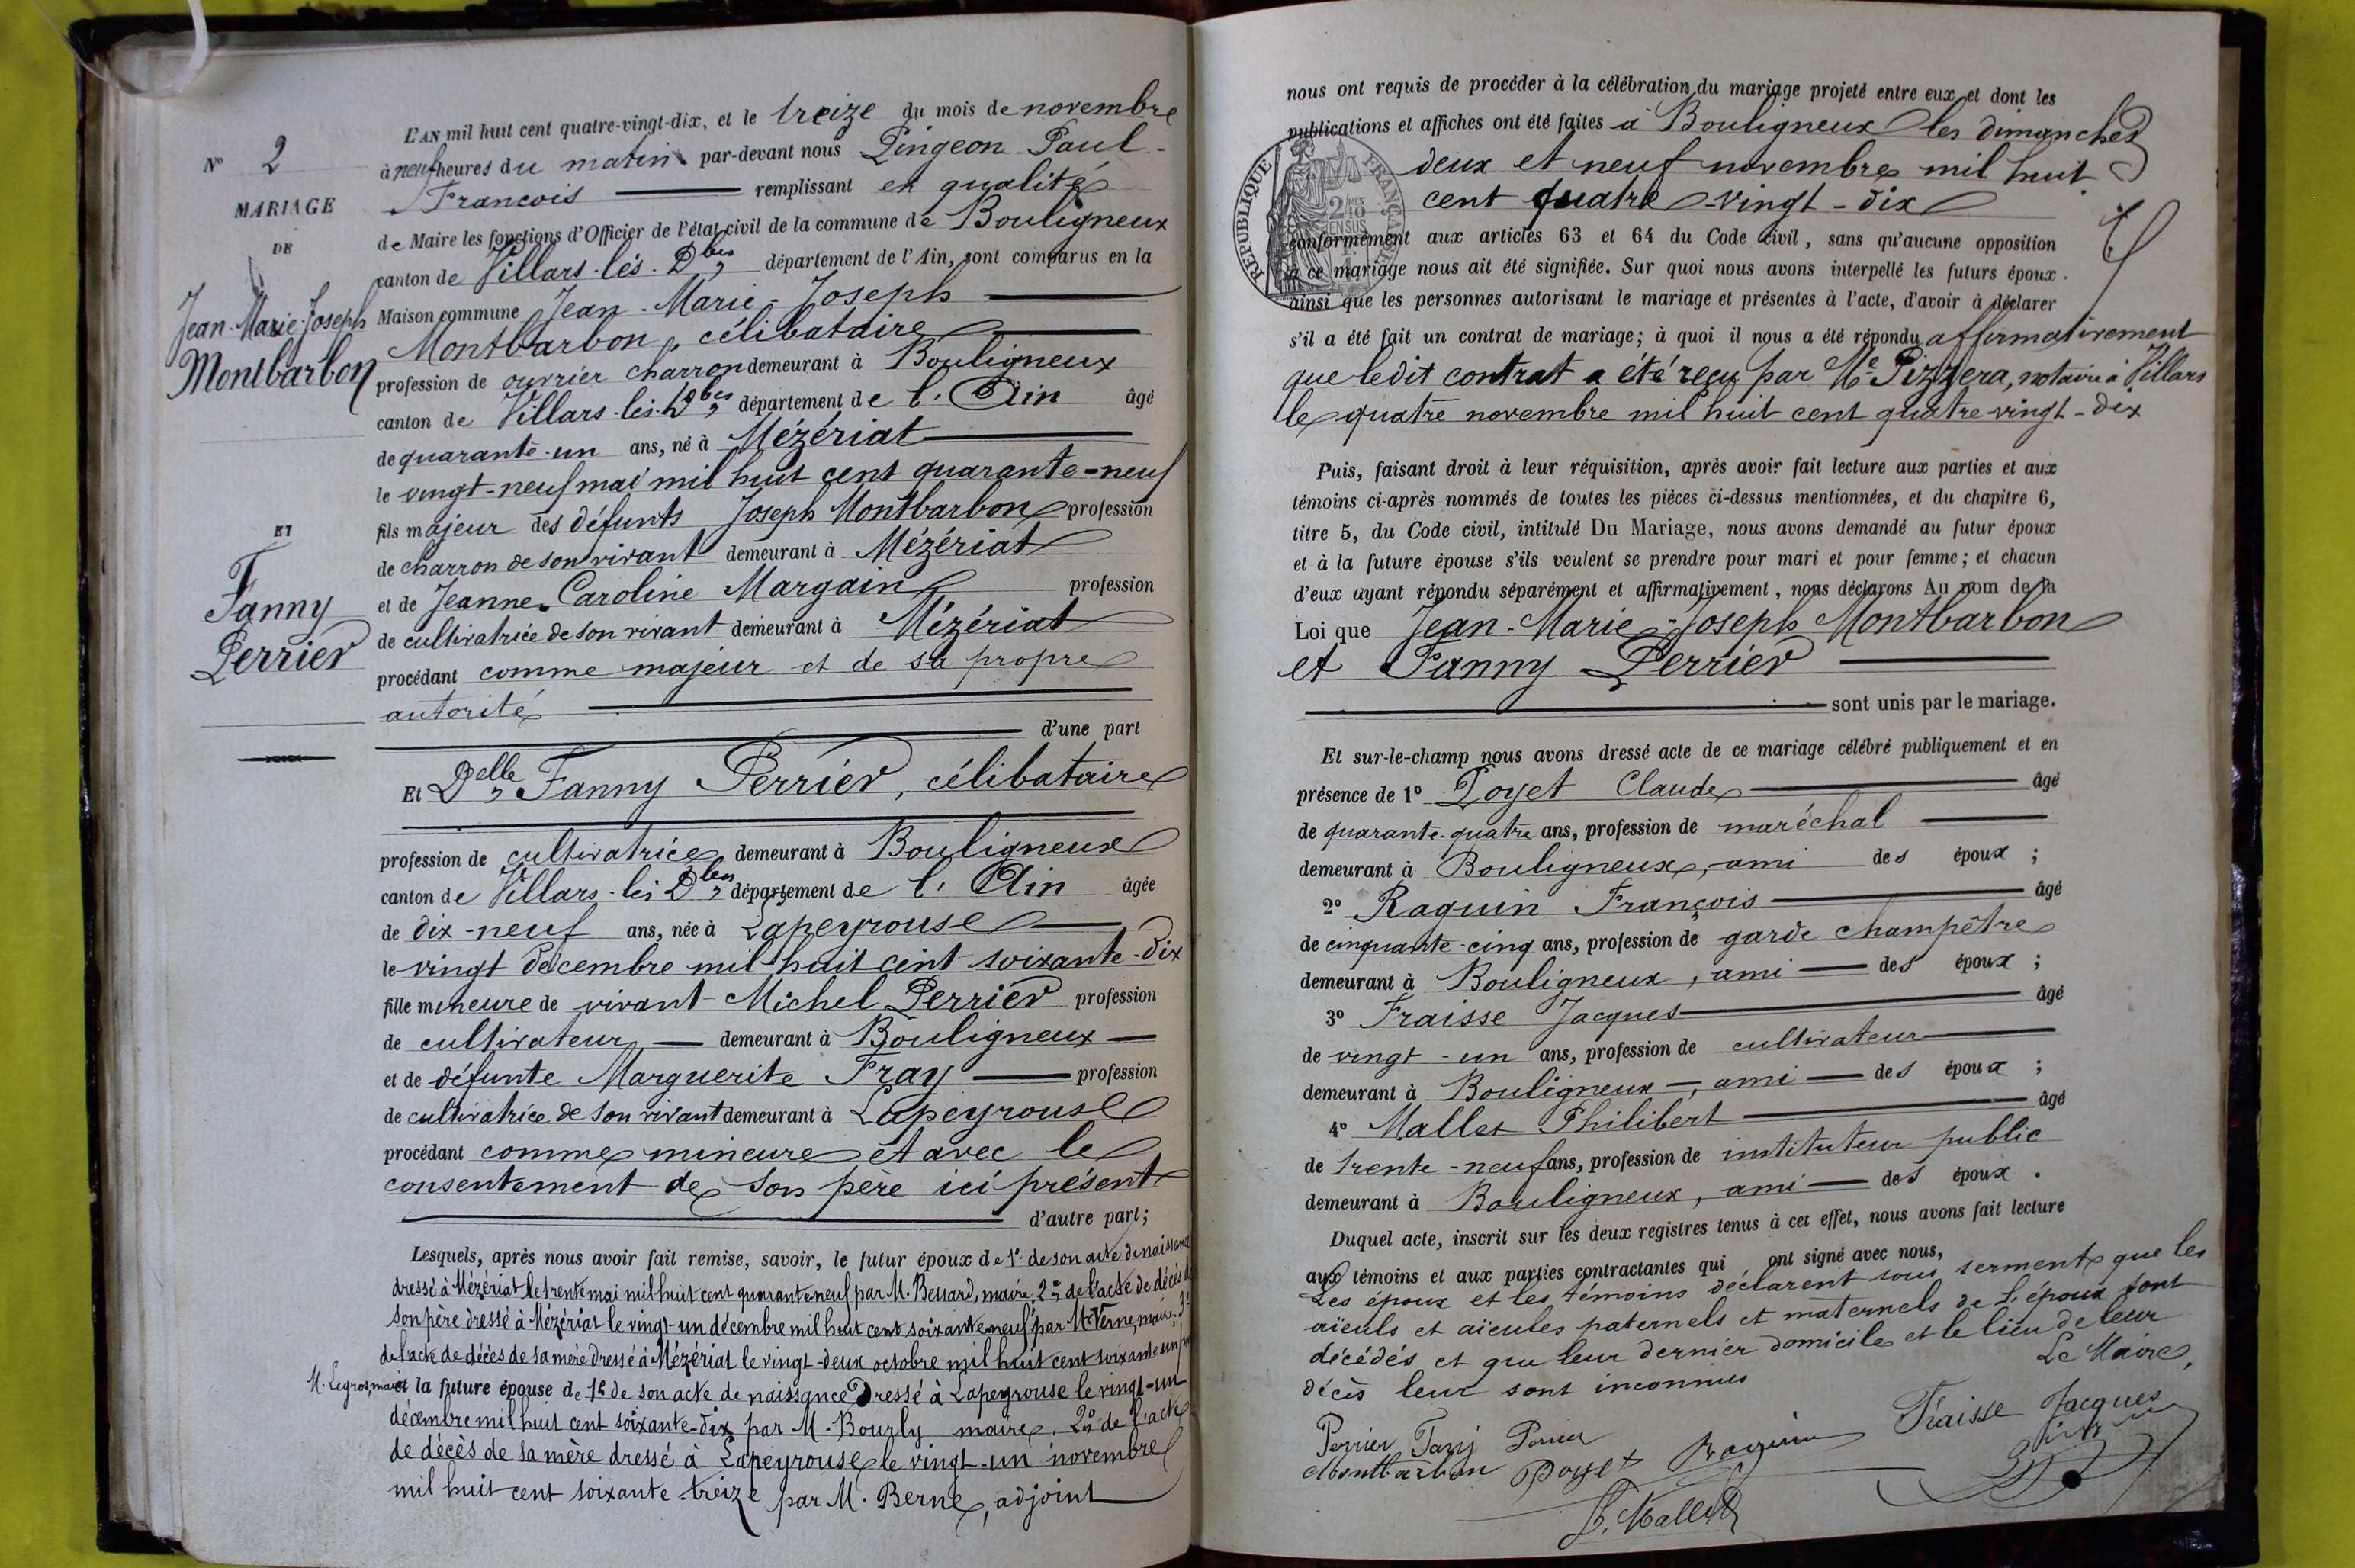 N° 2
MARIAGE
DE
Jean-Marie-Joseph
Montbarbon
ET
Fanny
Perrier
L'AN mil huit cent quatre-vingt-dix, et le treize du mois de novembre
à neuf heures du matin par-devant nous Pingeon Paul-
François remplissant en qualité
de Maire les fonctions d'Officier de l'état civil de la commune de Bouligneux
canton de Villars-lès-Dbes département de l'Ain, sont comparus en la
Maison commune Jean-Marie-Joseph
Montbarbon, célibataire
profession de ouvrier charron demeurant à Bouligneux
canton de Villars-lès-Dbes département de l'Ain âgé
de quarante-un ans, né à Mézériat
le vingt-neuf mai mil huit cent quarante-neuf
fils majeur des défunts Joseph Montbarbon profession
de charron de son vivant demeurant à Mézériat
et de Jeanne-Caroline Margain profession
de cultivatrice de son vivant demeurant à Mézériat
procédant comme majeur et de sa propre
autorité
d'une part
Et Delle Fanny Perrier, célibataire
profession de cultivatrice demeurant à Bouligneux
canton de Villars-lès-Dbes département de l'Ain âgée
de dix-neuf ans, née à Lapeyrouse
le vingt décembre mil huit cent soixante-dix
fille mineure de vivant Michel Perrier profession
de cultivateur demeurant à Bouligneux
et de défunte Marguerite Fray profession
de cultivatrice de son vivant demeurant à Lapeyrouse
procédant comme mineure et avec le
consentement de son père ici présent
d'autre part;
Lesquels, après nous avoir fait remise, savoir, le futur époux de 1° de son acte de naissance
dressé à Mézériat le trente mai mil huit cent quarante neuf par M. Bessard, maire, 2° de l'acte de décès de
son père dressé à Mézériat le vingt-un décembre mil huit cent soixante neuf par Mr Verne, maire, 3°
de l'acte de décès de sa mère dressé à Mézériat le vingt-deux octobre mil huit cent soixante un par
M. Legros, maire et la future épouse de 1° de son acte de naissance dressé à Lapeyrouse le vingt-un
décembre mil huit cent soixante-dix par M. Bourly maire, 2° de l'acte
de décès de sa mère dressé à Lapeyrouse le vingt-un novembre
mil huit cent soixante-treize par M. Berne, adjoint
nous ont requis de procéder à la célébration du mariage projeté entre eux et dont les
publications et affiches ont été faites à Bouligneux les dimanches
deux et neuf novembre mil huit
cent quatre-vingt-dix
REPUBLIQUE FRANÇAISE
conformément aux articles 63 et 64 du Code civil, sans qu'aucune opposition
à ce mariage nous ait été signifiée. Sur quoi nous avons interpellé les futurs époux.
ainsi que les personnes autorisant le mariage et présentes à l'acte, d'avoir à déclarer
s'il a été fait un contrat de mariage; à quoi il nous a été répondu affirmativement
que ledit contrat a été reçu par Me Pizzera, notaire à Villars
le quatre novembre mil huit cent quatre-vingt-dix
Puis, faisant droit à leur réquisition, après avoir fait lecture aux parties et aux
témoins ci-après nommés de toutes les pièces ci-dessus mentionnées, et du chapitre 6,
titre 5, du Code civil, intitulé Du Mariage, nous avons demandé au futur époux
et à la future épouse s'ils veulent se prendre pour mari et pour femme; et chacun
d'eux ayant répondu séparément et affirmativement, nous déclarons Au nom de la
Loi que Jean-Marie-Joseph Montbarbon
et Fanny Perrier
sont unis par le mariage.
Et sur-le-champ nous avons dressé acte de ce mariage célébré publiquement et en
présence de 1° Poyet Claude âgé
de quarante-quatre ans, profession de maréchal
demeurant à Bouligneux, ami des époux;
2° Raguin François âgé
de cinquante-cinq ans, profession de garde champêtre
demeurant à Bouligneux, ami des époux;
3° Fraisse Jacques âgé
de vingt-un ans, profession de cultivateur
demeurant à Bouligneux, ami des époux;
4° Mallet Philibert âgé
de trente-neuf ans, profession de instituteur public
demeurant à Bouligneux, ami des époux.
Duquel acte, inscrit sur les deux registres tenus à cet effet, nous avons fait lecture
aux témoins et aux parties contractantes qui ont signé avec nous,
Les époux et les témoins déclarent sous serment que les
aïeuls et aïeules paternels et maternels de l'époux sont
décédés et que leur dernier domicile et le lieu de leur
décès leur sont inconnus
Le Maire,
Perrier Fanny Perrier
Montbarbon Poyet Raguin Fraisse Jacques
P. Mallet